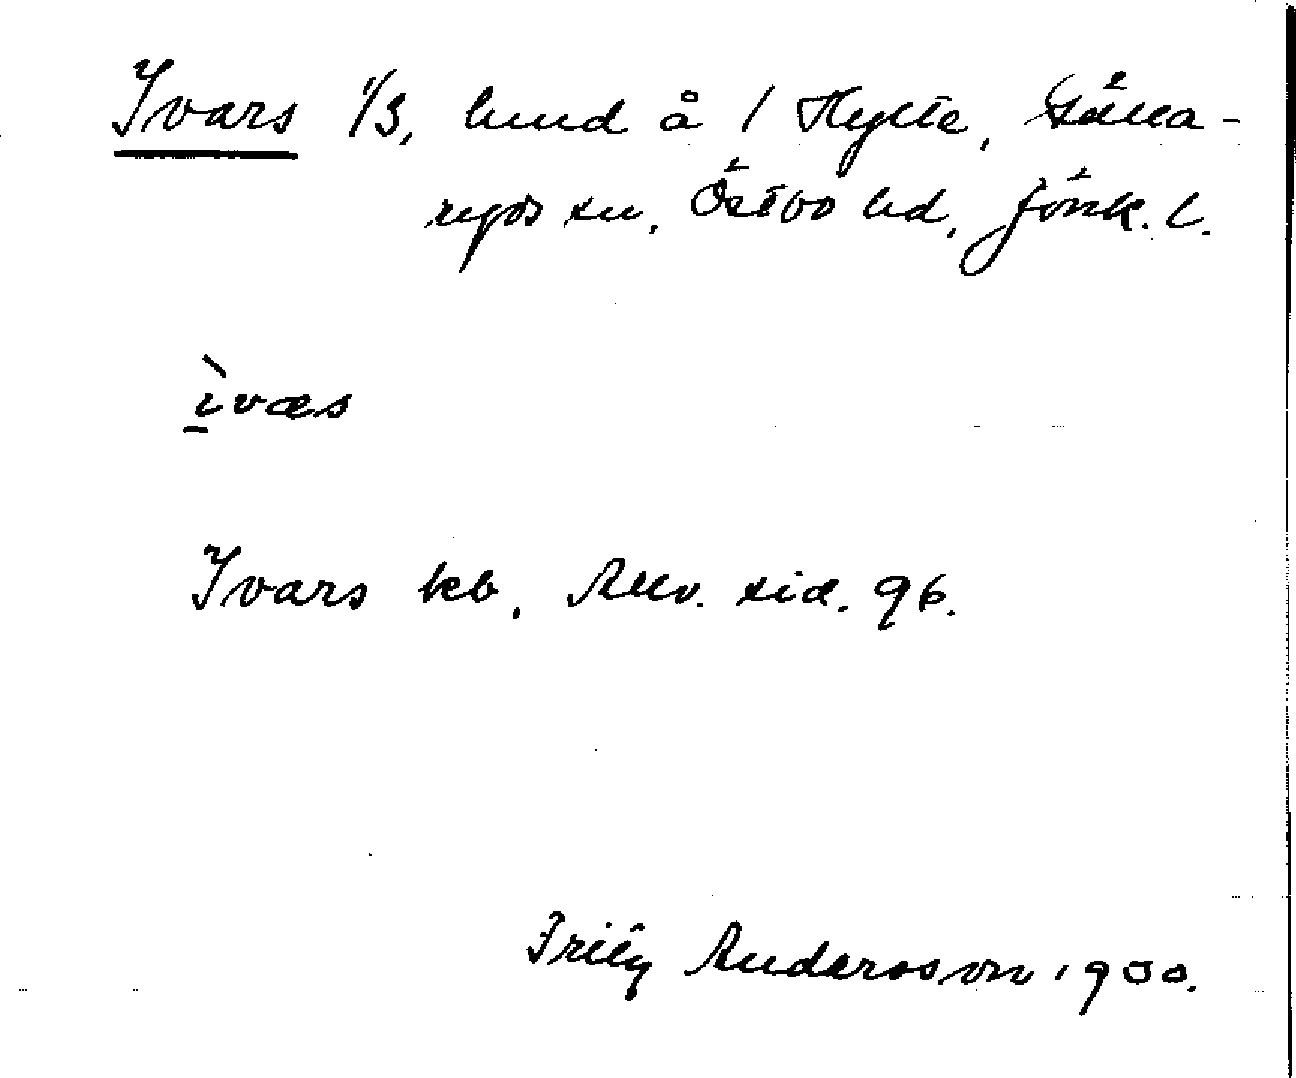 Ivars 1/3, hmd å 1 Hylte, Källa-
ryds sn, Östbo hd, Jönk. l.
ìvæs
Ivars kb, Anv. sid. 96.
Andersson 1930.